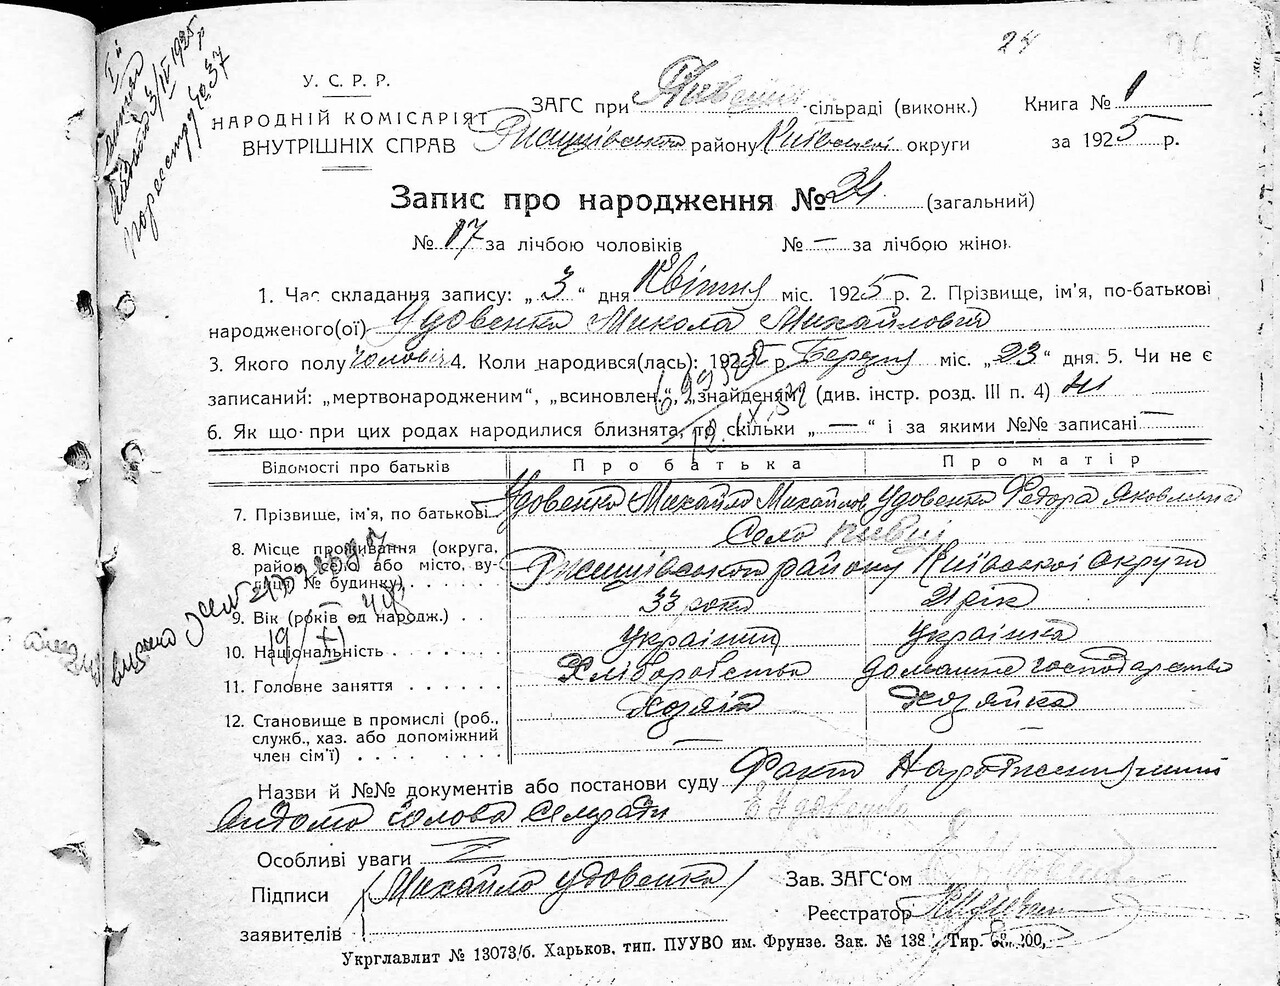 24
У. С. Р. Р.
НАРОДНІЙ КОМІСАРІЯТ
ВНУТРІШНІХ СПРАВ
ЗАГС при сільраді (виконк.)
Ржищівськом району Київської округи
Книга № 1
за 1925 р.
Запис про народження № 24 (загальний)
№ 17 за лічбою чоловіків № — за лічбою жінок
1. Час складання запису: „ 3 “ дня Квітня міс. 1925 р. 2. Прізвище, ім'я, по-батькові
народженого(ої) Удовенко Микола Михайлович
3. Якого полу чоловіч 4. Коли народився(лась): 1925 р. Березня міс. „ 23 “ дня. 5. Чи не є
записаний: „мертвонародженим“, „всиновлен.“, „знайденям“ (див. інстр. розд. III п. 4) ні
6. Як що при цих родах народилися близнята, то скільки „ — “ і за якими №№ записані —
Відомості про батьків Про батька Про матір
7. Прізвище, ім'я, по батькові Удовенко Михайло Михайлов Удовенко Федора Яковлівна
8. Місце проживання (округа, район, село або місто, вулиця, № будинку) Село
Ржищівськом району Київської округи
9. Вік (років од народж.) 33 роки 21 рік
10. Національність Українец Українка
11. Головне заняття Хліборобство домашне господарство
12. Становище в промислі (роб., служб., хаз. або допоміжний член сім'ї) Хозяїн Хозяйка
Назви й №№ документів або постанови суду Факт Народження
відомо голова Сельради
Особливі уваги
Підписи
заявителів
Михайло Удовенко
Зав. ЗАГС'ом
Реєстратор
Укрглавлит № 13073/б. Харьков, тип. ПУУВО им. Фрунзе. Зак. № 138 Тир.